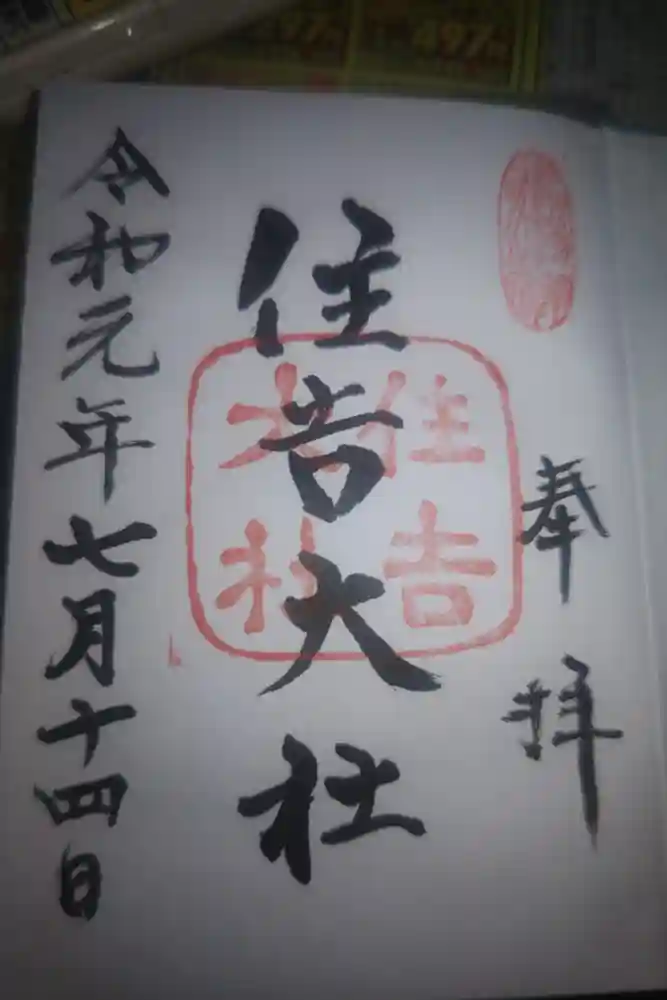 奉拝
住吉大社
住吉大社
令和元年七月十四日
497